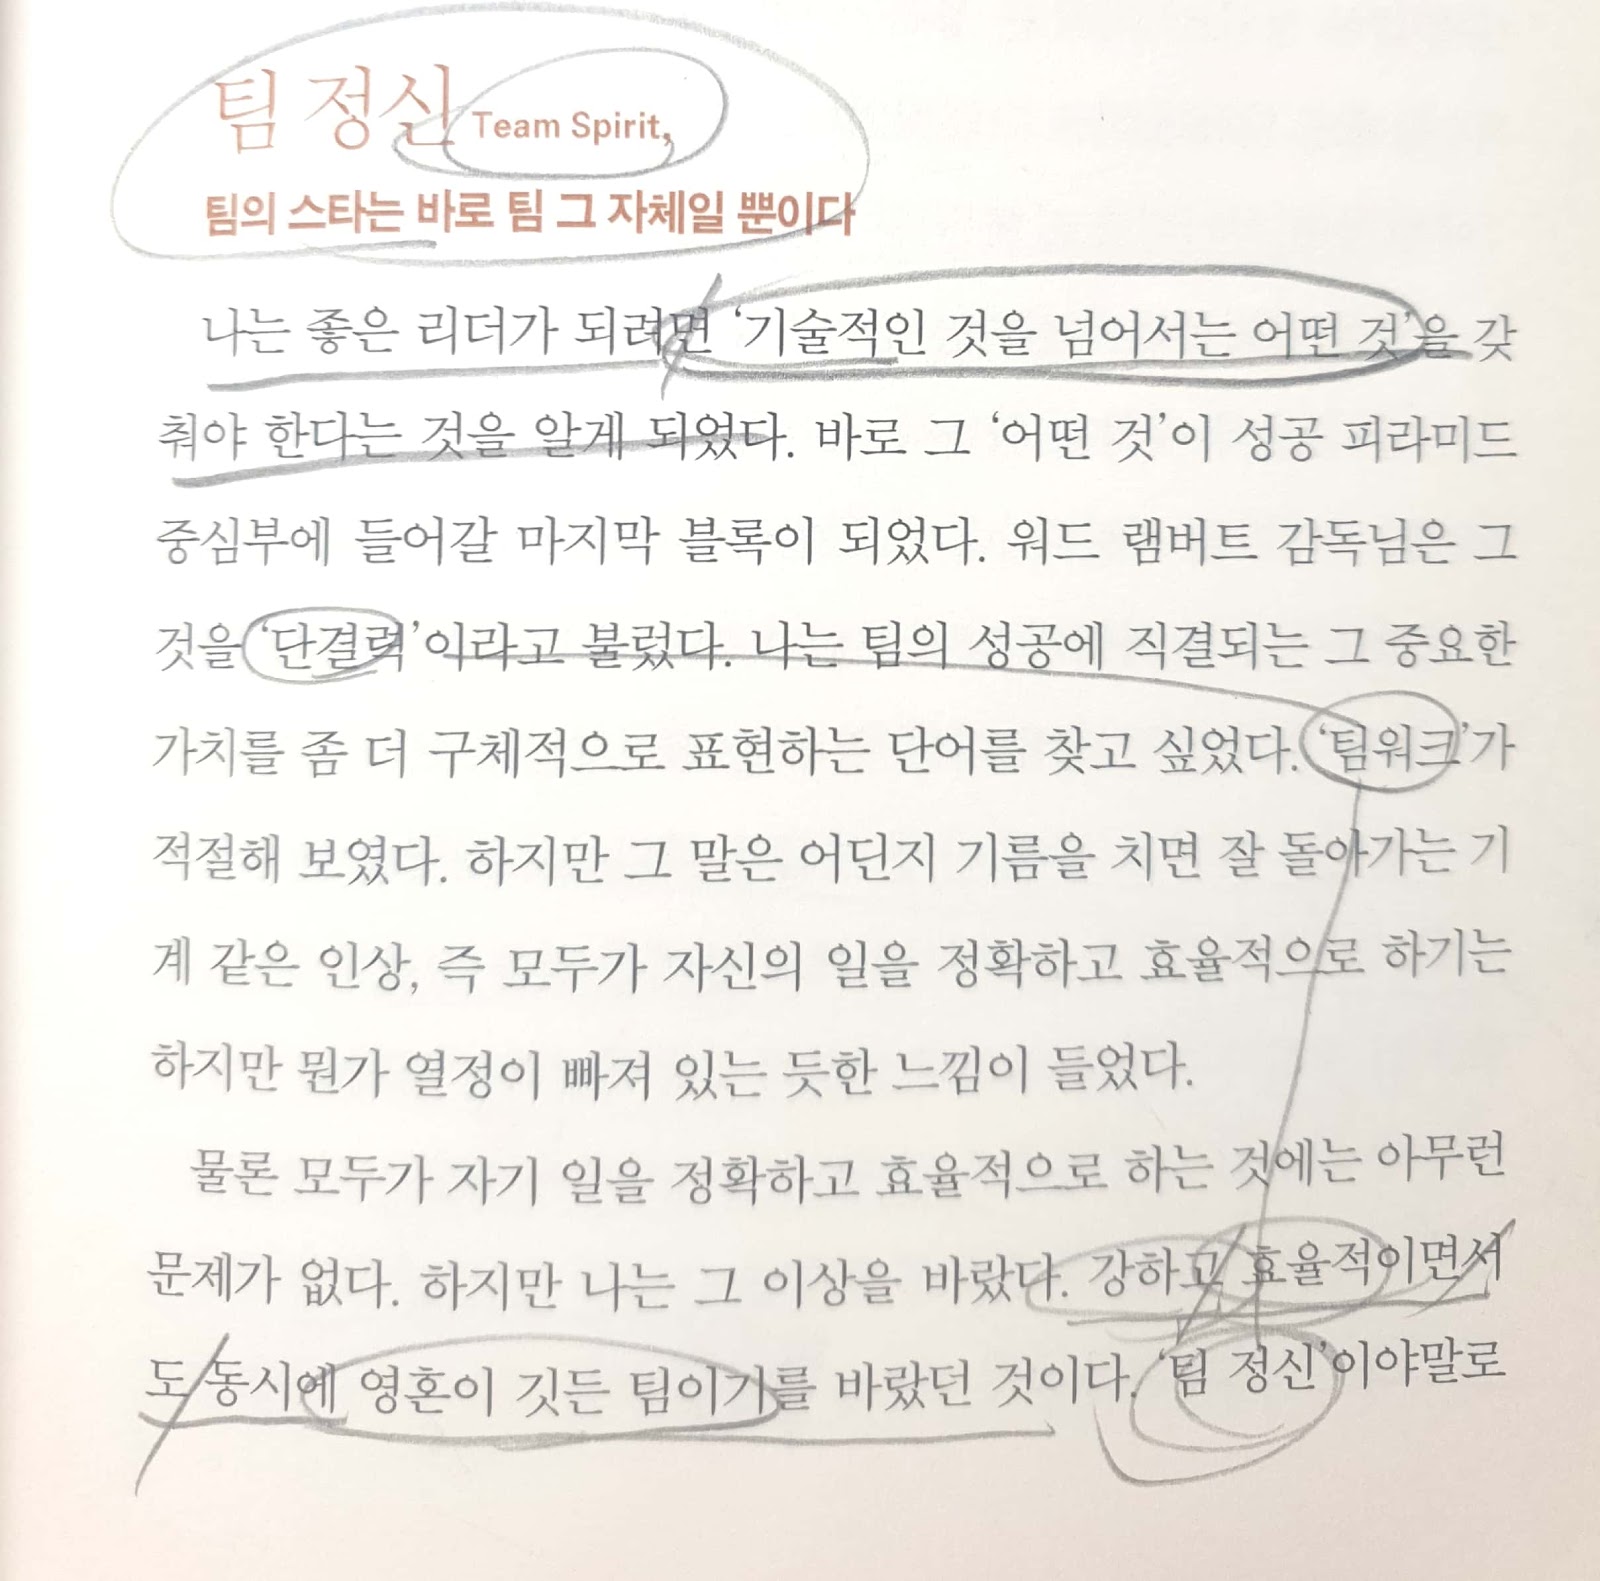 팀 정신 Team Spirit,
팀의 스타는 바로 팀 그 자체일 뿐이다
나는 좋은 리더가 되려면 ‘기술적인 것을 넘어서는 어떤 것’을 갖
춰야 한다는 것을 알게 되었다. 바로 그 ‘어떤 것’이 성공 피라미드
중심부에 들어갈 마지막 블록이 되었다. 워드 램버트 감독님은 그
것을 ‘단결력’이라고 불렀다. 나는 팀의 성공에 직결되는 그 중요한
가치를 좀 더 구체적으로 표현하는 단어를 찾고 싶었다. ‘팀워크’가
적절해 보였다. 하지만 그 말은 어딘지 기름을 치면 잘 돌아가는 기
계 같은 인상, 즉 모두가 자신의 일을 정확하고 효율적으로 하기는
하지만 뭔가 열정이 빠져 있는 듯한 느낌이 들었다.
물론 모두가 자기 일을 정확하고 효율적으로 하는 것에는 아무런
문제가 없다. 하지만 나는 그 이상을 바랐다. 강하고 효율적이면서
도 동시에 영혼이 깃든 팀이기를 바랐던 것이다. ‘팀 정신’이야말로